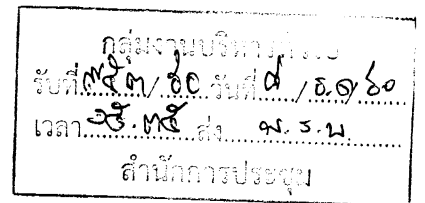 กลุ่มงานบริหารทั่วไป
รับที่ ๗๕๓/๖๐ วันที่ ๘ / ธ.ค./ ๖๐
เวลา ๑๕.๓๕ ส่ง พ.ร.บ.
สำนักการประชุม